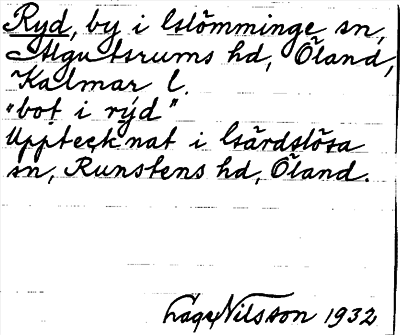 Ryd, by i Glömminge sn,
Algutsrums hd, Öland,
Kalmar l.
"bot i rýd"
Upptecknat i Gärdslösa
sn, Runstens hd, Öland.
Lage Nilsson 1932